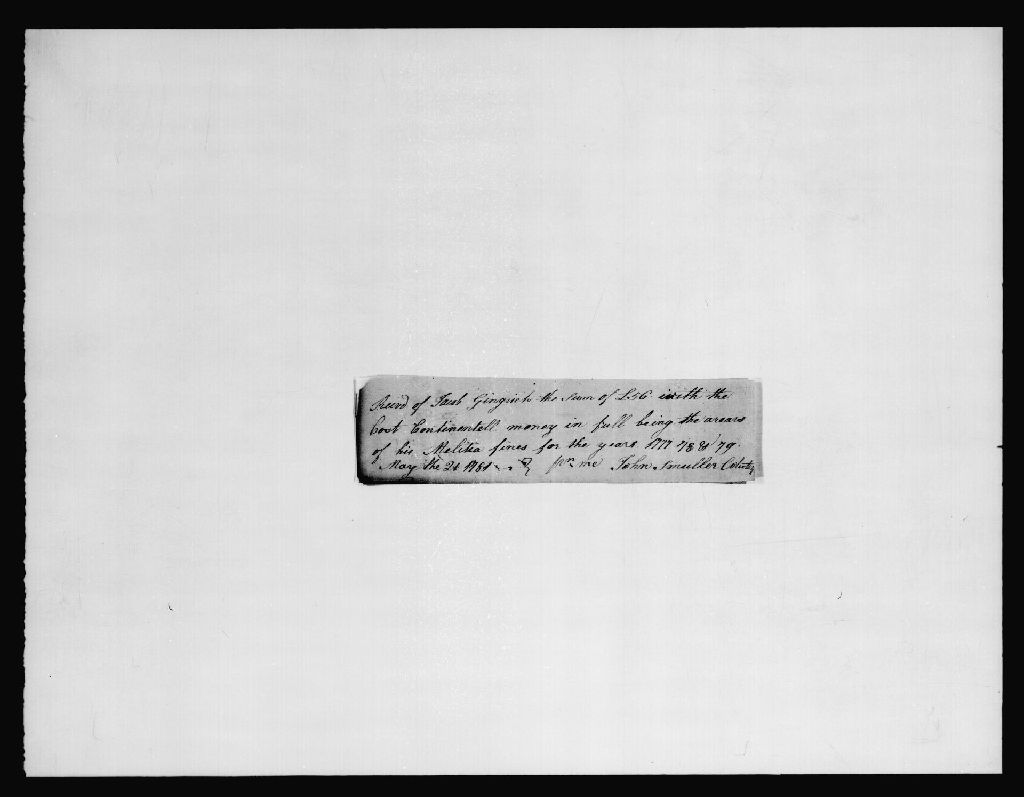 Receivd of Jacob Gingrich the sum of £56 with the
Cost Continentell money in full being the arears
of his Melitea fines for the years 1777 78 & 79
May the 2d 1781 pr me John Smuller Coletr